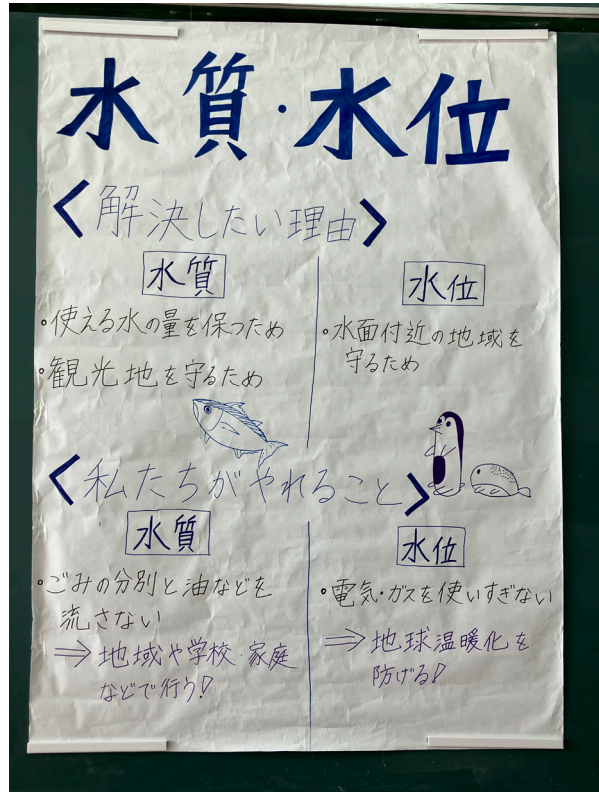 水質・水位
<解決したい理由>
水質
・使える水の量を保つため
・観光地を守るため
水位
・水面付近の地域を
守るため
<私たちがやれること>
水質
・ごみの分別と油などを
流さない
⇒地域や学校・家庭
などで行う!
水位
・電気・ガスを使いすぎない
⇒地球温暖化を
防げる!